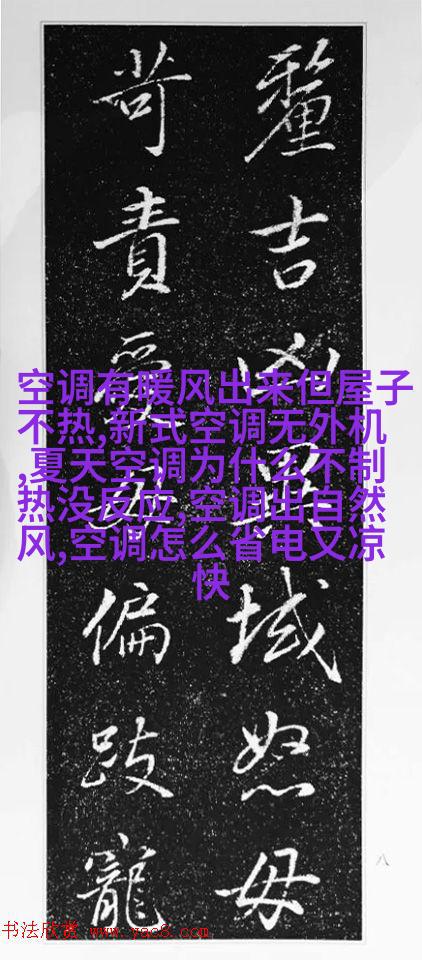 釐吉凶異域怒毋
苛責愛毋偏跂寵
空调有暖风出来但屋子
不热,新式空调无外机
,夏天空调为什么不制
热没反应,空调出自然
风,空调怎么省电又凉
快
八
书法欣赏 www.yac8.com